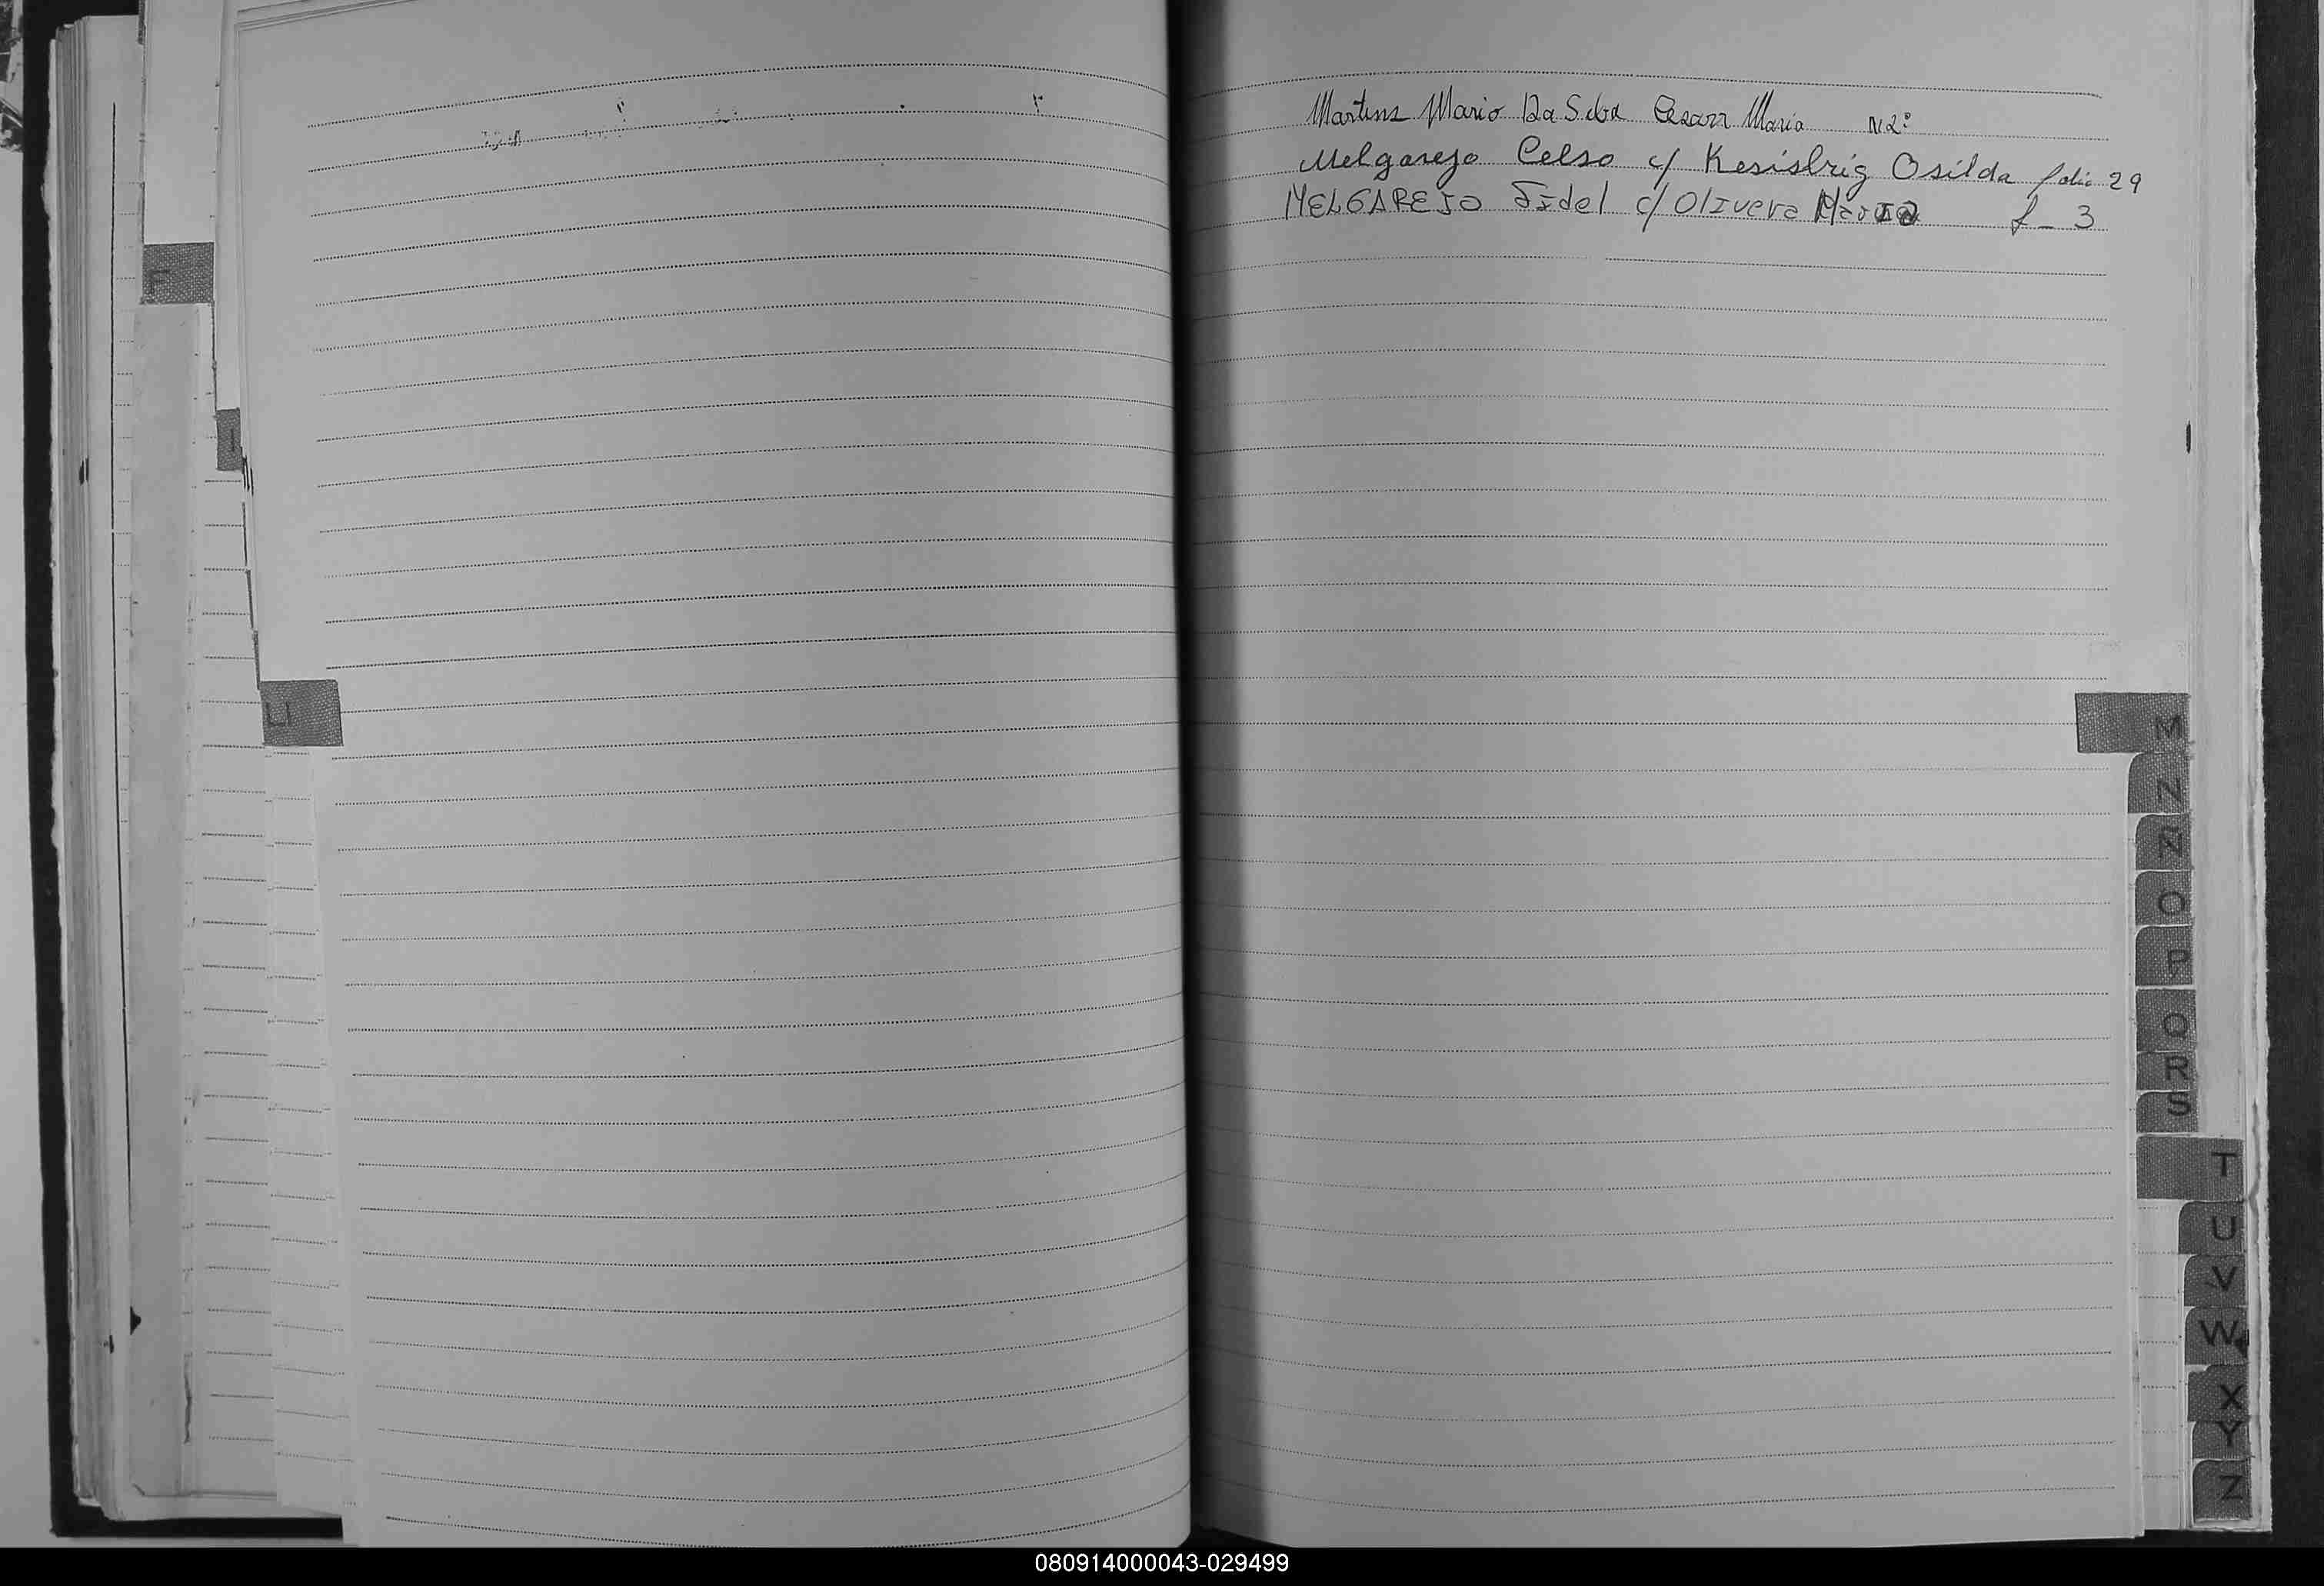 Martins Mario Da Silva Maria N2º
Melgarejo Celso c/ Kesislrig Osilda folio 29
MELGAREJO Fidel c/ Olivera Maria f_ 3
F
I
M
N
Ñ
O
P
Q
R
S
T
U
V
W
X
Y
Z
080914000043-029499